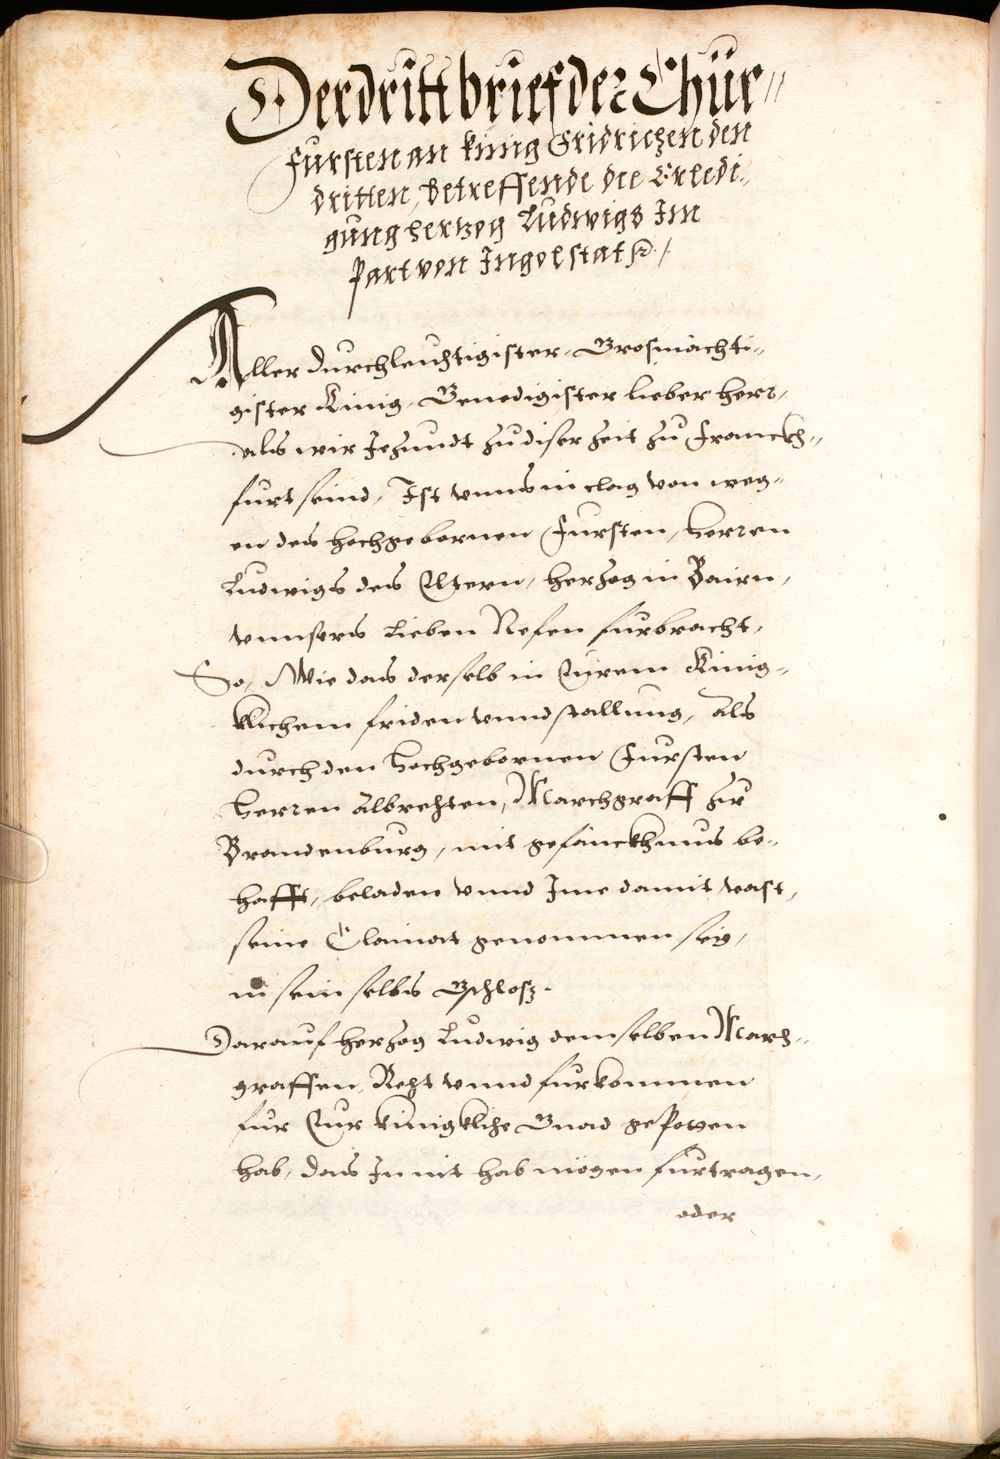 Der dritt brief der Chur-
fursten an kunig Fridrichen den
dritten, Betreffende die Erledi-
gung hertzog Ludwigs Im
Part von Ingolstat /
Aller durchleuchtigister, Grosmächti-
gister Kunig, Genedigister lieber herr,
als wir Jezundt zu diser zeit zu Franckh-
furt seind, Ist vnns in clag von weg-
en des hochgebornen Fursten, herren
Ludwigs des Eltern, herzog in Bairn,
vnnsers lieben Nefen furbracht,
So, Wie das derselb in Eurem Kinig-
klichem friden vnnd stallung, als
durch den hochgebornen Fursten
herren Albrechten, Marchgraff zu
Brandenburg, mit gefänckhnus be-
hafft, beladen vnnd Ime damit vast,
seine Clainat genommen sey,
in sein selbs Gschlosz.
Darauf herzog Ludwig demselben March-
graffen, Recht vnnd furkommen
fur Eur kunigkliche Gnad gepoten
hab, das In nit hab mögen furtragen,
oder